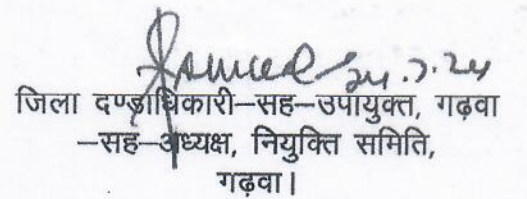 24.7.24
जिला दण्डाधिकारी–सह–उपायुक्त, गढ़वा
–सह–अध्यक्ष, नियुक्ति समिति,
गढ़वा।